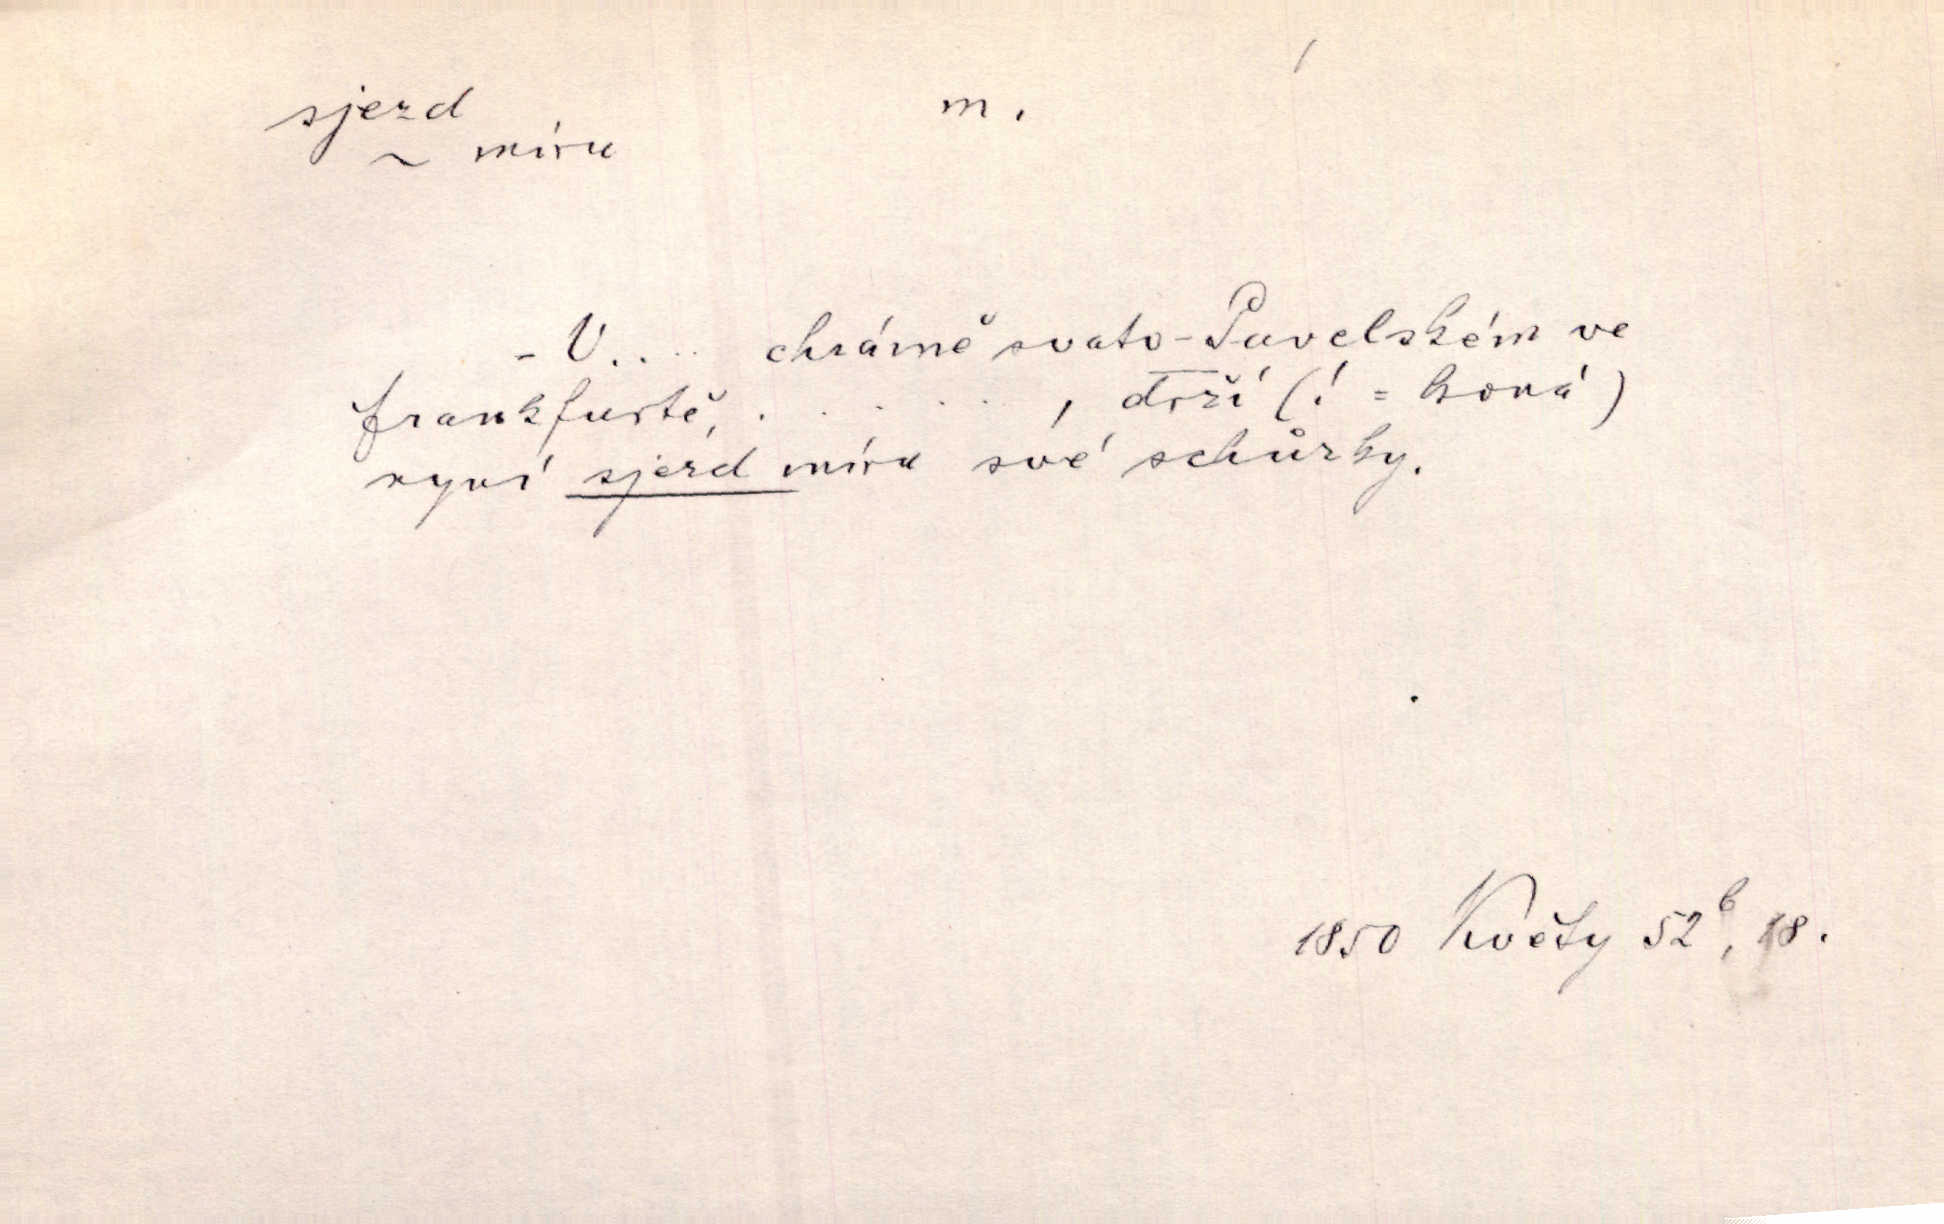 sjezd m.
~ míru
- V.... chrámě svato-Pavelském ve
frankfurtě, . . . . . . , drží (! = koná)
nyní sjezd míru své schůzky.
1850 Květy 52b, 18.